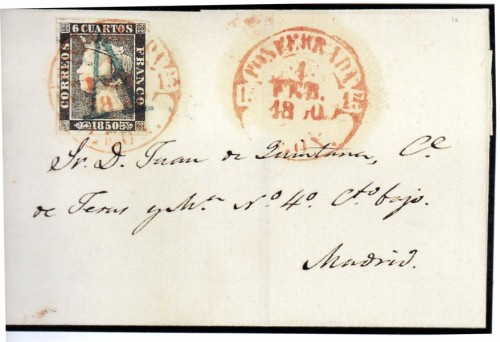 6 CUARTOS
CORREOS
FRANCO
1850
A
PONFERRADA
1
FEB.
1850
Sr. D. Juan de Quintana, Ce
de Feras y Mn No 4o Cto bajo.
Madrid.